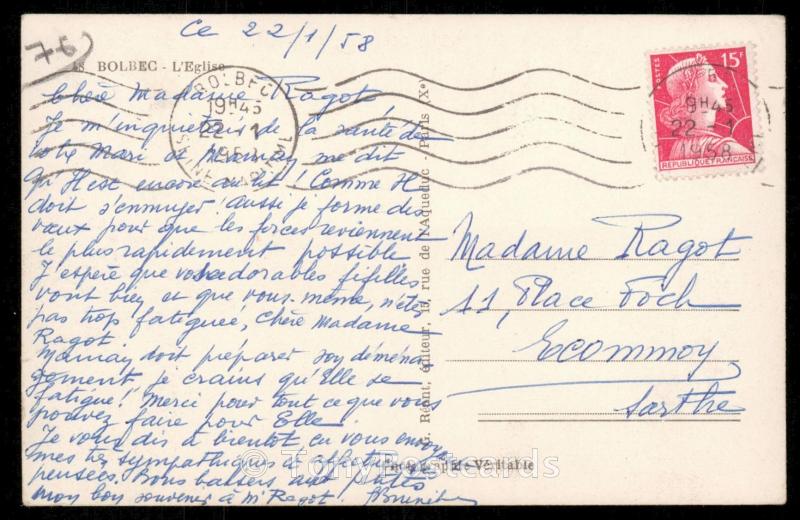 76
Ce 22/1/58
48 BOLBEC - L'Eglise
BOLBEC
19H45
22 - 1
1958
SEINE MARITIME
POSTES
15F
REPUBLIQUE FRANÇAISE
9H45
22 - 1
1958
Chère Madame Ragot
Je m'inquiétais de la santé de
votre Mari et Maman me dit
qu'Il est encore au lit! Comme Il
doit s'ennuyer! aussi je forme des
vœux pour que les forces reviennent
le plus rapidement possible
J'espère que vos adorables fifilles
vont bien et que vous-même, n'êtes
pas trop fatiguée, Chère Madame
Ragot.
Maman doit préparer son déména
gement, je crains qu'Elle se
fatigue! Merci pour tout ce que vous
pouvez faire pour Elle.
Je vous dis à bientôt en vous envoy
mes très sympathiques et affectueuses
pensées. Bons baisers aux
mon bon souvenir à Mr Ragot.
G. Réant, éditeur, 15, rue de l'Aqueduc - Paris (Xe)
Madame Ragot
11, Place Foch
Ecommoy
Sarthe
Photographie Véritable
© TonyPostcards